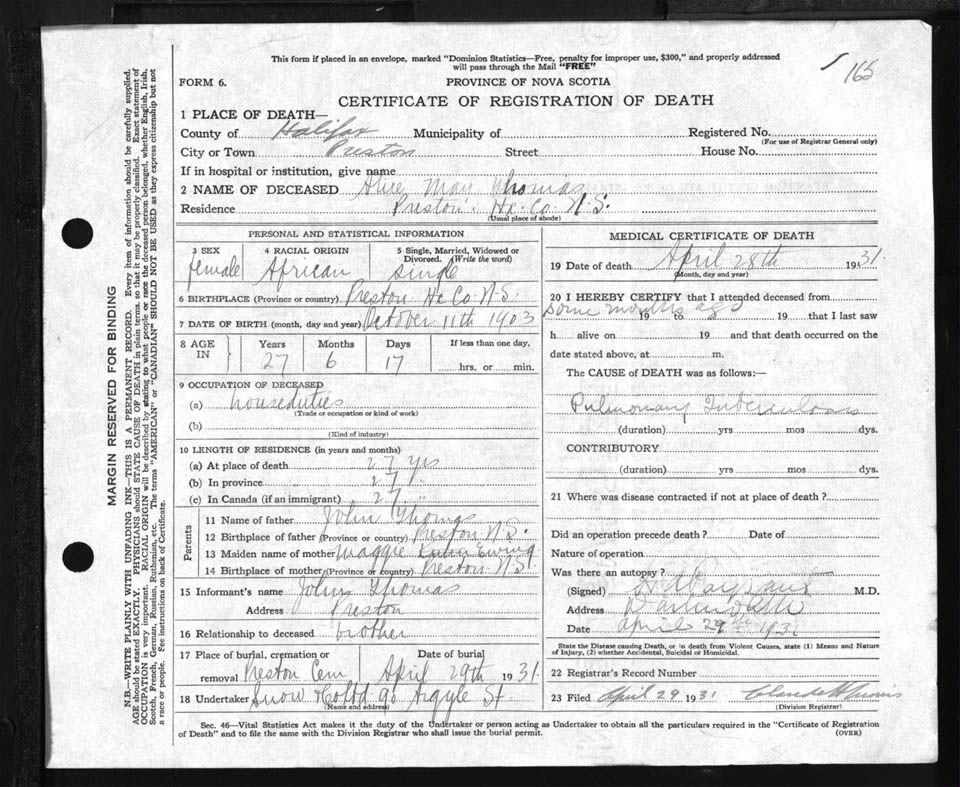 This form if placed in an envelope, marked "Dominion Statistics—Free, penalty for improper use, $300," and properly addressed
will pass through the Mail "FREE"
165
FORM 6.
PROVINCE OF NOVA SCOTIA
CERTIFICATE OF REGISTRATION OF DEATH
1 PLACE OF DEATH—
County of Halifax Municipality of Registered No.
(For use of Registrar General only)
City or Town Preston Street House No.
If in hospital or institution, give name
2 NAME OF DECEASED Alice May Thomas
Residence Preston Hx. Co. N.S.
(Usual place of abode)
PERSONAL AND STATISTICAL INFORMATION
3 SEX 4 RACIAL ORIGIN 5 Single, Married, Widowed or Divorced. (Write the word)
female African single
6 BIRTHPLACE (Province or country) Preston Hx Co. N.S.
7 DATE OF BIRTH (month, day and year) October 11th 1903
8 AGE IN Years Months Days If less than one day,
27 6 17 hrs. or min.
9 OCCUPATION OF DECEASED
(a) houseduties
(Trade or occupation or kind of work)
(b)
(Kind of industry)
10 LENGTH OF RESIDENCE (in years and months)
(a) At place of death 27 yrs
(b) In province 27 "
(c) In Canada (if an immigrant) 27 "
Parents
11 Name of father John Thomas
12 Birthplace of father (Province or country) Preston N.S.
13 Maiden name of mother Maggie Ewing
14 Birthplace of mother (Province or country) Preston N.S.
15 Informant's name John Thomas
Address Preston
16 Relationship to deceased brother
17 Place of burial, cremation or removal Date of burial
Preston Cem April 29th 1931
18 Undertaker Snow & Co Ltd 90 Argyle St
(Name and address)
MEDICAL CERTIFICATE OF DEATH
19 Date of death April 28th 1931
(Month, day and year)
20 I HEREBY CERTIFY that I attended deceased from
some months ago 19 to 19 that I last saw
h alive on 19 and that death occurred on the
date stated above, at m.
The CAUSE of DEATH was as follows:—
Pulmonary Tuberculosis
(duration) yrs mos dys.
CONTRIBUTORY
(duration) yrs mos dys.
21 Where was disease contracted if not at place of death?
Did an operation precede death? Date of
Nature of operation
Was there an autopsy?
(Signed) M.D.
Address Dartmouth
Date April 29th 1931
State the Disease causing Death, or in death from Violent Causes, state (1) Means and Nature
of Injury, (2) whether Accidental, Suicidal or Homicidal.
22 Registrar's Record Number
23 Filed April 29 1931
(Division Registrar)
Sec. 46—Vital Statistics Act makes it the duty of the Undertaker or person acting as Undertaker to obtain all the particulars required in the "Certificate of Registration
of Death" and to file the same with the Division Registrar who shall issue the burial permit.
(OVER)
MARGIN RESERVED FOR BINDING
N.B.—WRITE PLAINLY WITH UNFADING INK—THIS IS A PERMANENT RECORD. Every item of information should be carefully supplied.
AGE should be stated EXACTLY. PHYSICIANS should STATE CAUSE OF DEATH in plain terms, so that it may be properly classified. Exact statement of
OCCUPATION is very important. RACIAL ORIGIN will be described by stating to what people or race the deceased person belonged, whether English, Irish,
Scotch, French, German, Russian, Ruthenian, etc. The terms "AMERICAN" or "CANADIAN" SHOULD NOT BE USED as they express citizenship but not
a race or people. Fee instructions on back of Certificate.